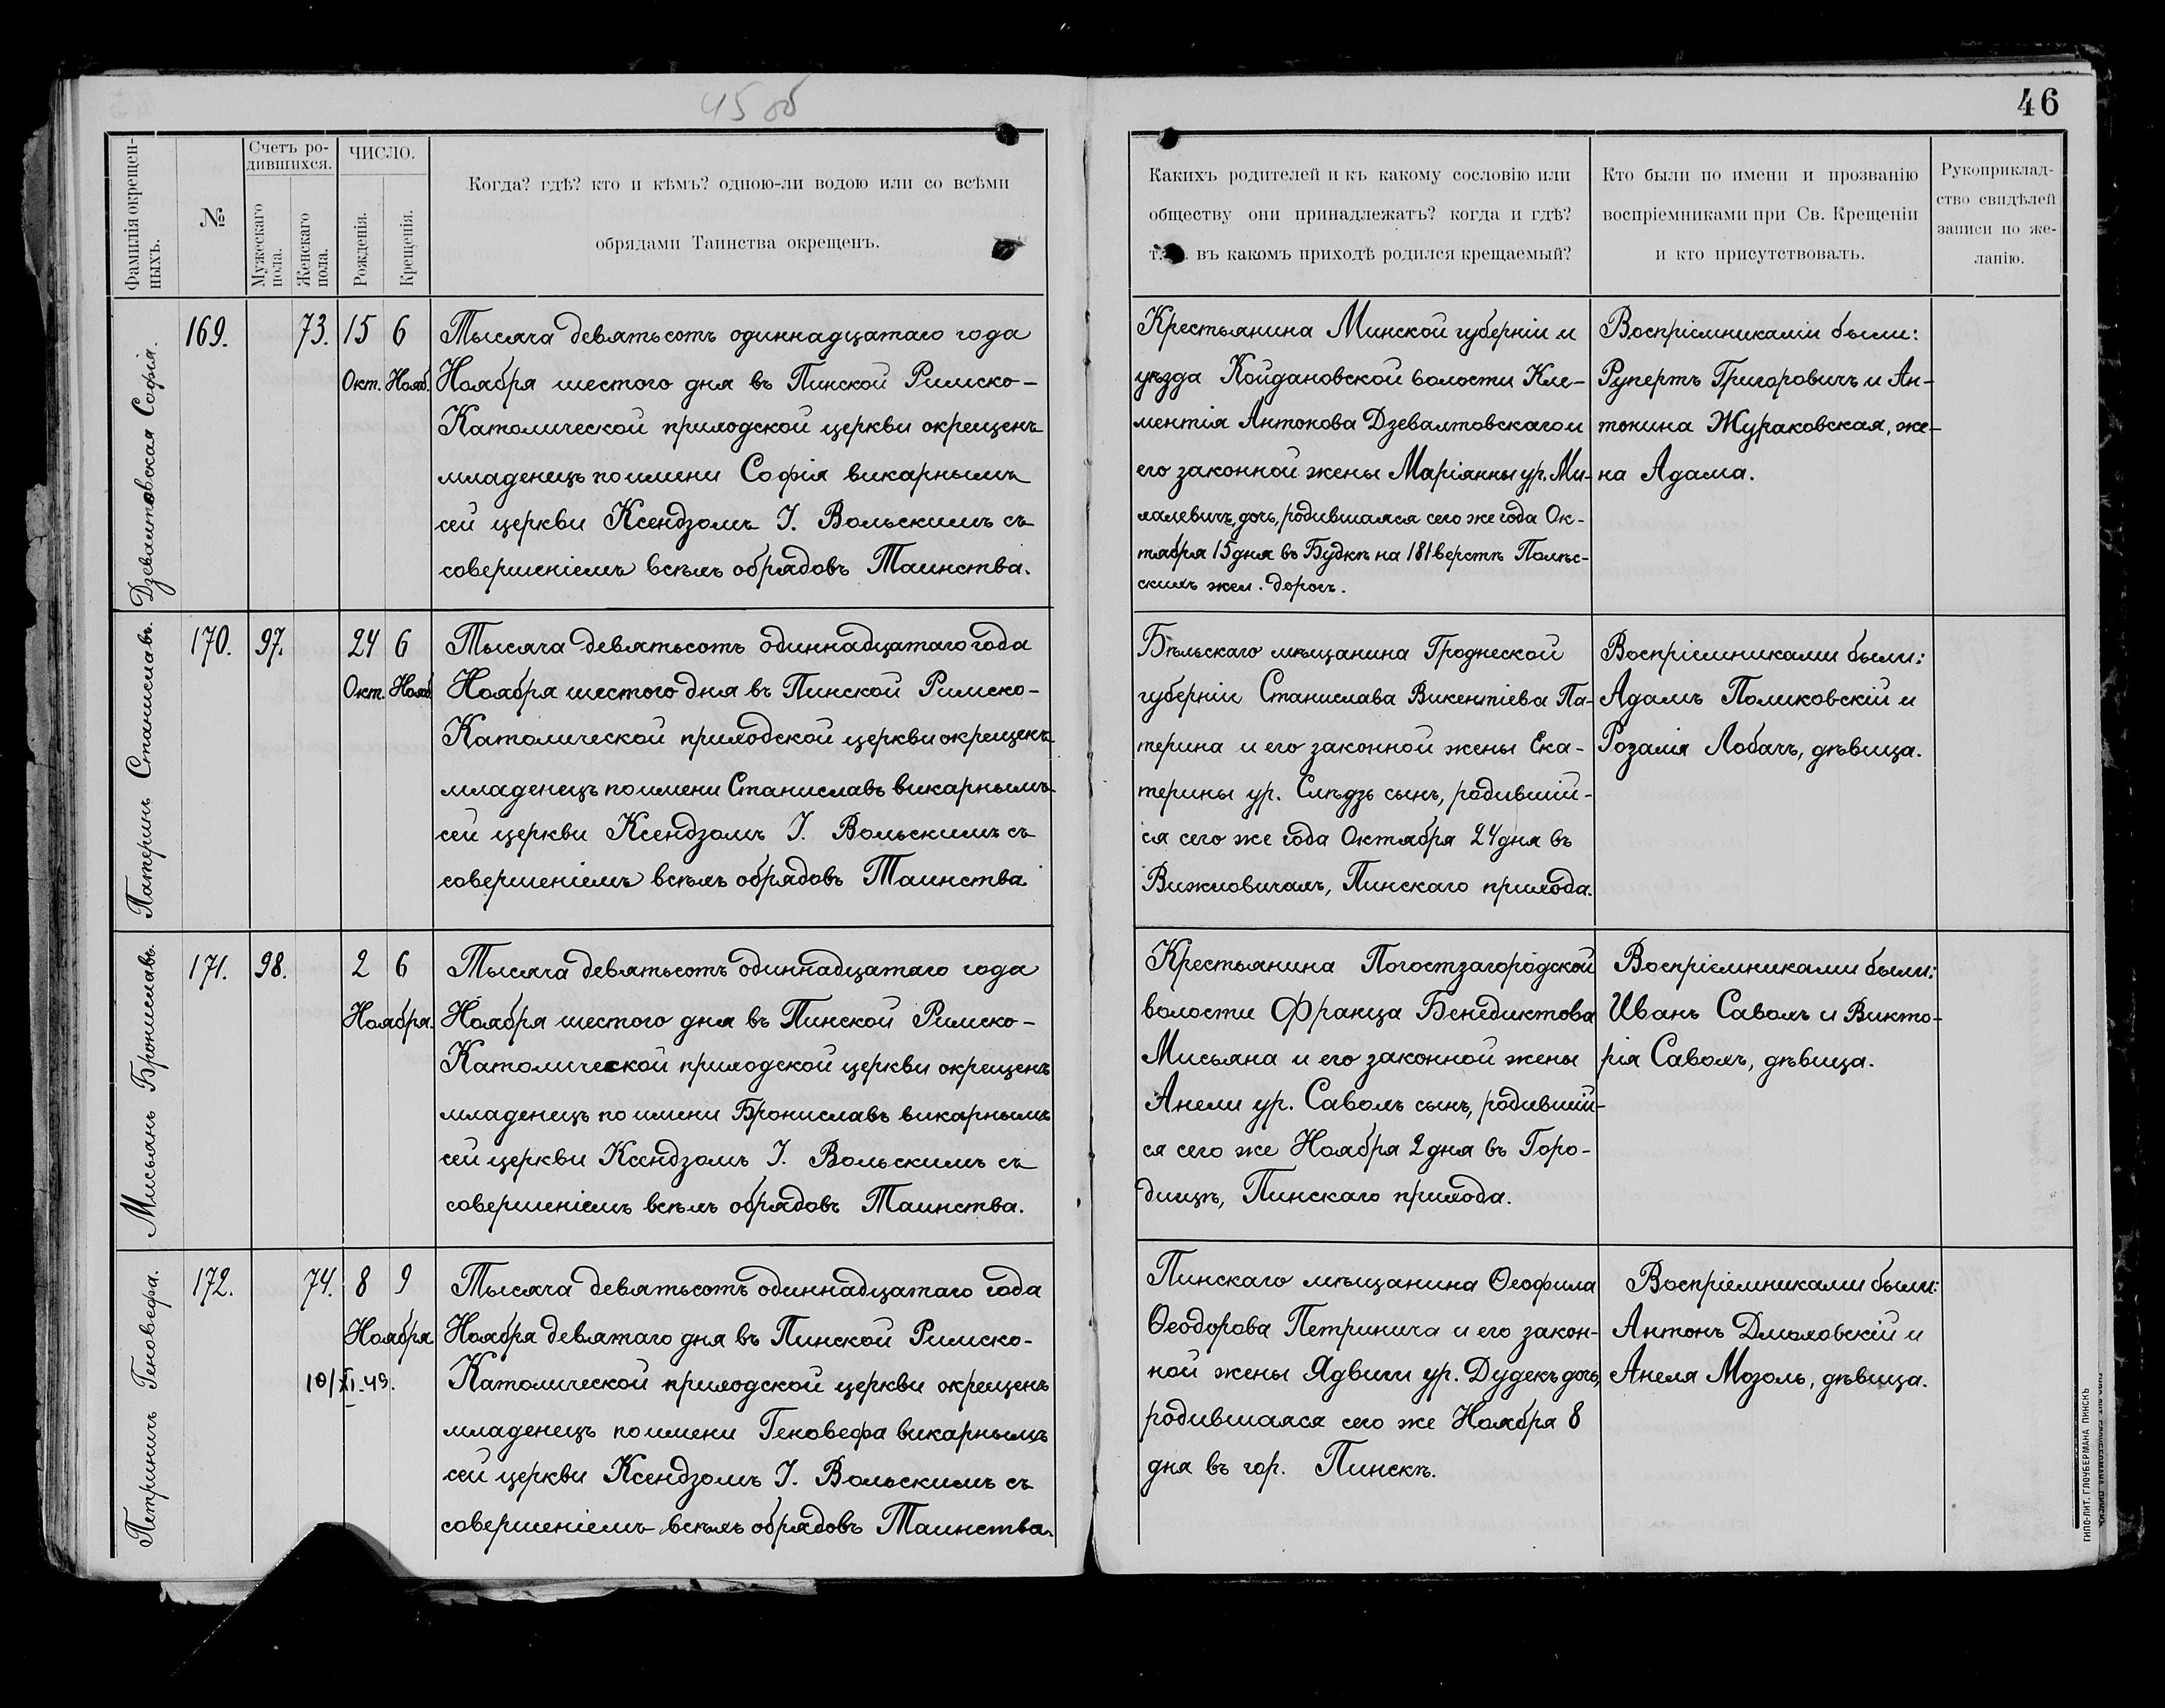 45 об
46
Фамилія окрещен-
ныхъ.
№
Счетъ ро-
дившихся.
Мужескаго
пола.
Женскаго
пола.
ЧИСЛО.
Рожденія.
Крещенія.
Когда? гдѣ? кто и кѣмъ? одною-ли водою или со всѣми
обрядами Таинства окрещенъ.
Какихъ родителей и къ какому сословію или
обществу они принадлежатъ? когда и гдѣ?
въ какомъ приходѣ родился крещаемый?
Кто были по имени и прозванію
воспріемниками при Св. Крещеніи
и кто присутствовалъ.
Рукоприклад-
ство свидѣлей
записи по же-
ланію.
Дзевалтовская Софія.
169.
73.
15
Окт.
6
Нояб.
Тысяча девятьсотъ одиннадцатаго года
Ноября шестого дня въ Пинской Римско-
Католической приходской церкви окрещенъ
младенецъ по имени Софія викарнымъ
сей церкви Ксендзомъ І. Вольскимъ съ
совершеніемъ всѣхъ обрядовъ Таинства.
Крестьянина Минской губерніи и
уѣзда Койдановской волости Кле-
ментія Антонова Дзевалтовскаго и
его законной жены Маріянны ур. Ми-
халевичъ, дочь, родившаяся сего же года Ок-
тября 15 дня въ Будкѣ на 181 верстѣ Полѣс-
скихъ жел. дорогъ.
Воспріемниками были:
Рупертъ Григоровичъ и Ан-
тонина Жураковская, же-
на Адама.
Патеринъ Станиславъ.
170.
97.
24
Окт.
6
Нояб
Тысяча девятьсотъ одиннадцатаго года
Ноября шестого дня въ Пинской Римско-
Католической приходской церкви окрещенъ
младенецъ по имени Станиславъ викарнымъ
сей церкви Ксендзомъ І. Вольскимъ съ
совершеніемъ всѣхъ обрядовъ Таинства
Бѣльскаго мѣщанина Гродненской
губерніи Станислава Викентіева Па-
терина и его законной жены Ека-
терины ур. Слѣдзь сынъ, родившій-
ся сего же года Октября 24 дня въ
Вижловичахъ, Пинскаго прихода.
Воспріемниками были:
Адамъ Полховскій и
Розалія Лобачъ, дѣвица.
Мисьянъ Брониславъ.
171.
98.
2
6
Ноября.
Тысяча девятьсотъ одиннадцатаго года
Ноября шестого дня въ Пинской Римско-
Католической приходской церкви окрещенъ
младенецъ по имени Брониславъ викарнымъ
сей церкви Ксендзомъ І. Вольскимъ съ
совершеніемъ всѣхъ обрядовъ Таинства.
Крестьянина Погостзагородской
волости Франца Бенедиктова
Мисьяна и его законной жены
Анели ур. Саволъ сынъ, родившій-
ся сего же Ноября 2 дня въ Горо-
дищѣ, Пинскаго прихода.
Воспріемниками были:
Иванъ Саволъ и Викто-
рія Саволъ, дѣвица.
Петриничъ Геновефа.
172.
74.
8
9
Ноября
10/XI.49.
Тысяча девятьсотъ одиннадцатаго года
Ноября девятаго дня въ Пинской Римско-
Католической приходской церкви окрещенъ
младенецъ по имени Геновефа викарнымъ
сей церкви Ксендзомъ І. Вольскимъ съ
совершеніемъ всѣхъ обрядовъ Таинства.
Пинскаго мѣщанина Ѳеофила
Ѳеодорова Петринича и его закон-
ной жены Ядвиги ур. Дудекъ дочь,
родившаяся сего же Ноября 8
дня въ гор. Пинскѣ.
Воспріемниками были:
Антонъ Дмоховскій и
Анеля Мозоль, дѣвица.
ТИПО-ЛИТ. ГЛОУБЕРМАНА ПИНСКЪ